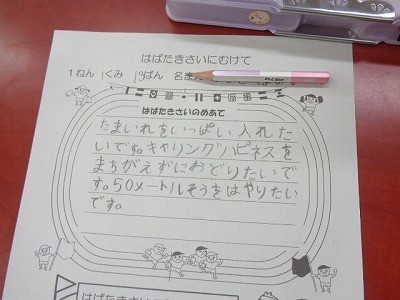 はばたきさいにむけて
1ねん 1くみ 19ばん 名まえ
はばたきさいのめあて
たまいれをいっぱい入れた
いです。キャリングハピネスを
まちがえずにおどりたいで
す。50メートルそうをはやりたい
です。
はばたきさいの